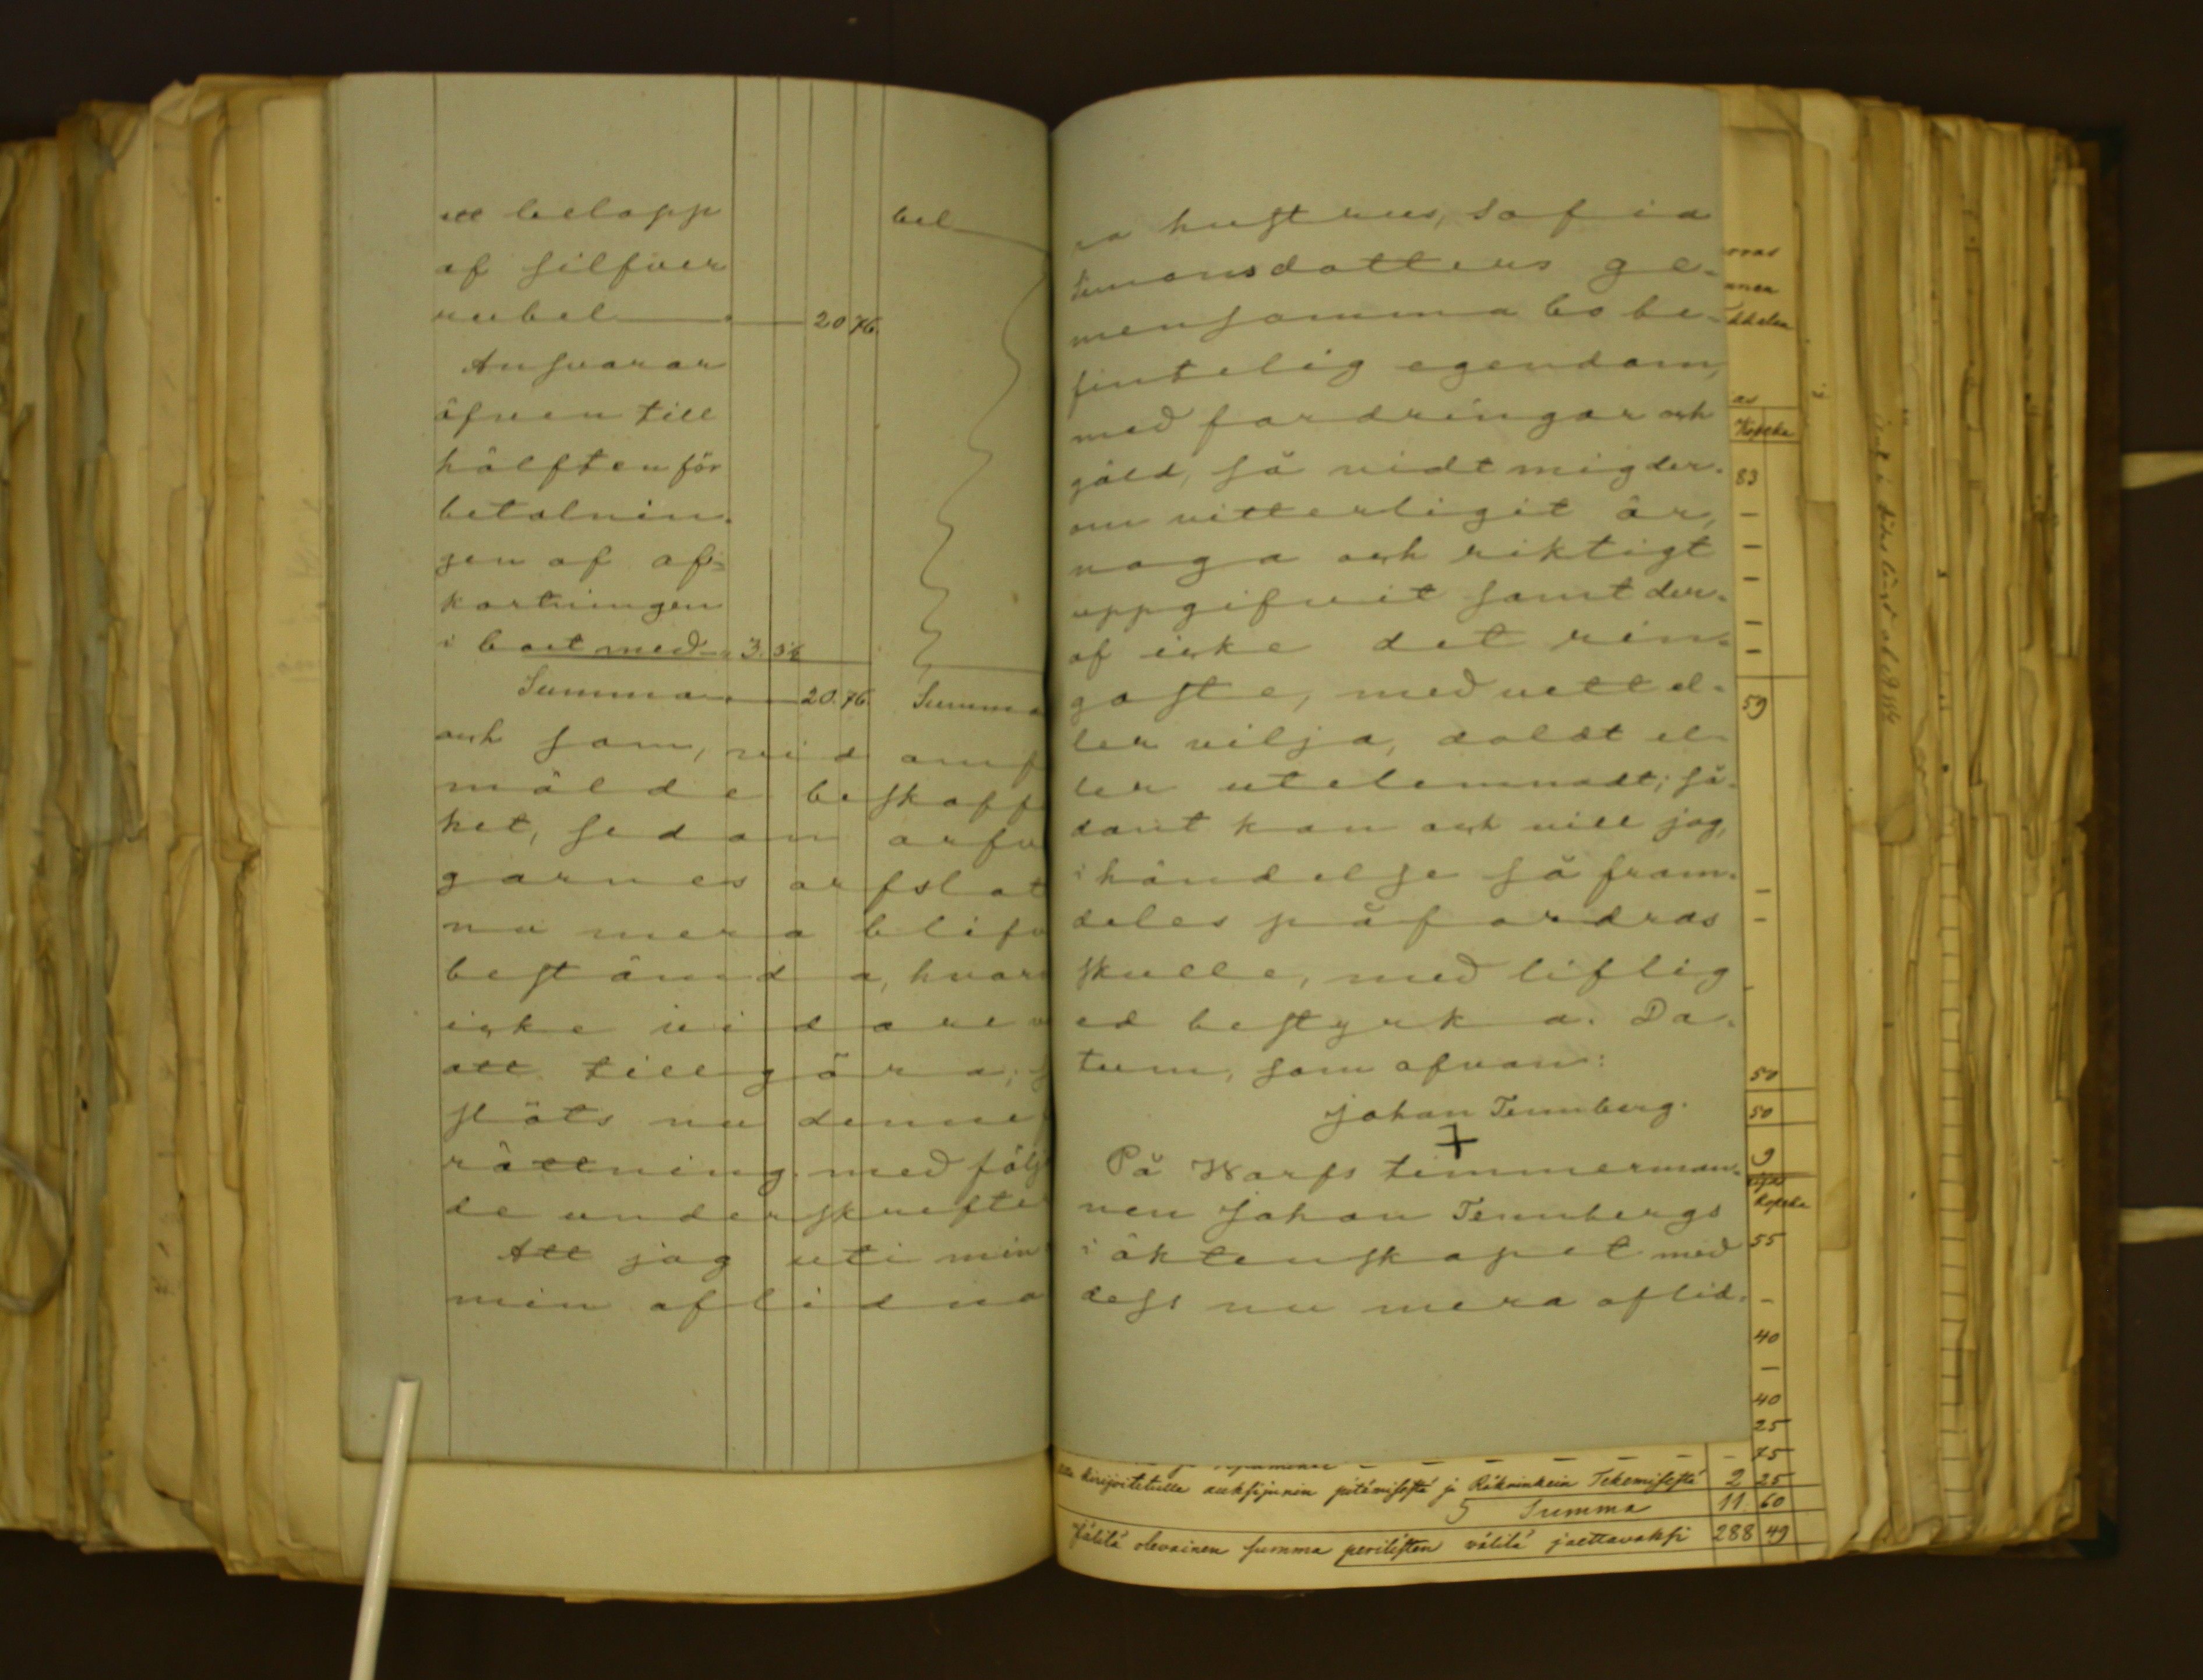 ett belopp
af silfver
rubel 20 76.
Ansvarar
äfven till
hälften för
betalnin-
gen af af-
kortningen
i boet med 3. 3½
Summa 20. 76.
bel
Summa
och som, vid
mälde beskaff
het, sedan arfv
garnes arfslot
nu mera blifv
bestämda, hvar
icke vidare
att tillgöra;
slöts nu denne
rättning med följ
de underskrefte
Att jag uti min
min aflidna
ra hustrus, Sofia
Simonsdotters ge-
mensamma bo be-
fintelig egendom,
med fordringar och
gäld, så vidt mig der-
om vitterligit är,
noga och riktigt
uppgifvit samt der-
af icke det rin-
gaste, med vett el-
ler vilja, doldt el-
ler utelemnadt; så-
dant kan och vill jag,
i händelse så fram-
deles påfordras
skulle, med liflig
ed bestyrka. Da-
tum, som ofvan:
Johan Tennberg.
På Warfs timmerman-
nen Johan Tennbergs
i äktenskapet med
dess nu mera aflid-
Kopeka
83
59
50
50
9
Kopeka
55
40
40
25
75
kirjoitetulle auksijunin pitämisestä ja Räkninkein Tekemisestä 2 25
Summa 11. 60
Jälilä olevainen summa perilisten välilä jaettavaksi 288 49